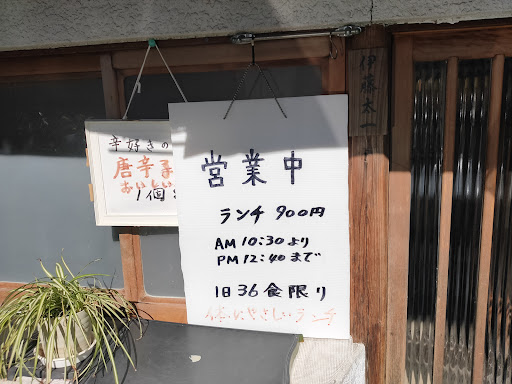 伊藤太一
辛好きの
唐辛子
おいしい
1個
営業中
ランチ 900円
AM 10:30より
PM 12:40まで
1日36食限り
体にやさしいランチ